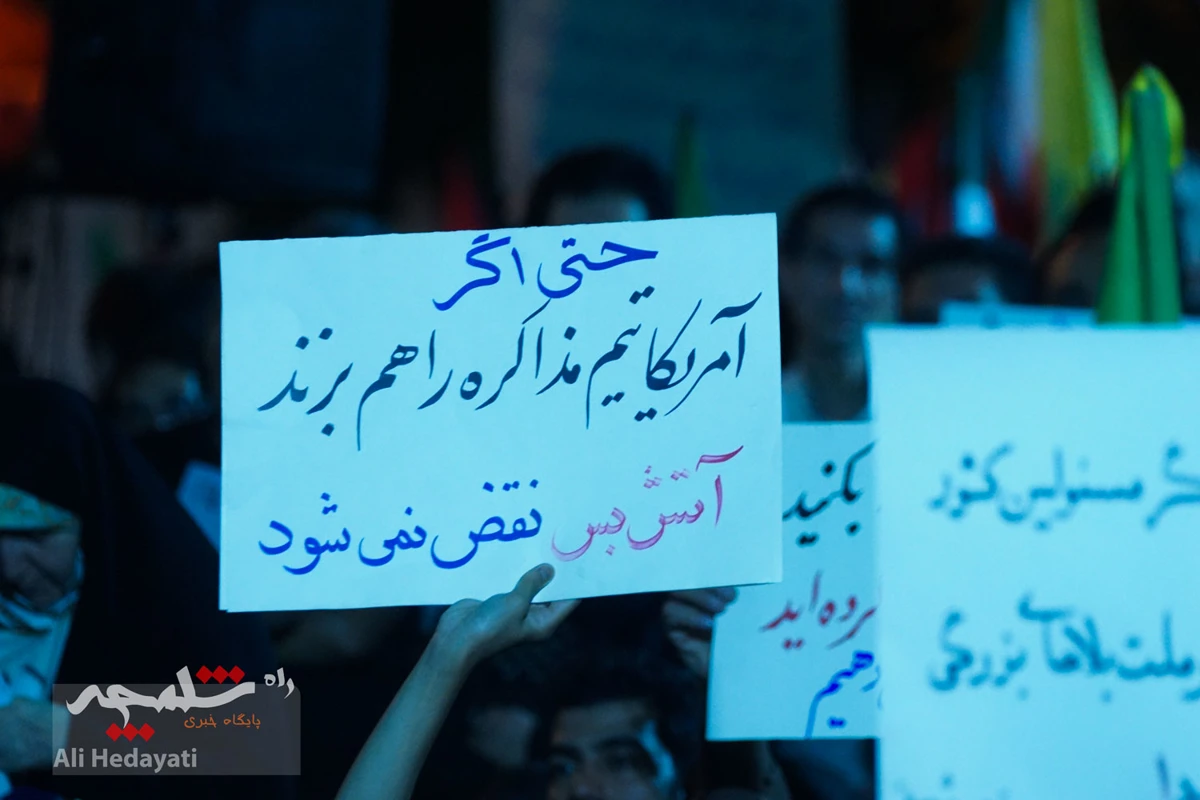 حتی اگر
آمریکا تیم مذاکره را هم بزند
آتش بس نقض نمی شود
بکنید
رده اید
دهیم
گر مسئولین کشور
ملت بلاهای بزرگی
راه شلمچه
پایگاه خبری
Ali Hedayati